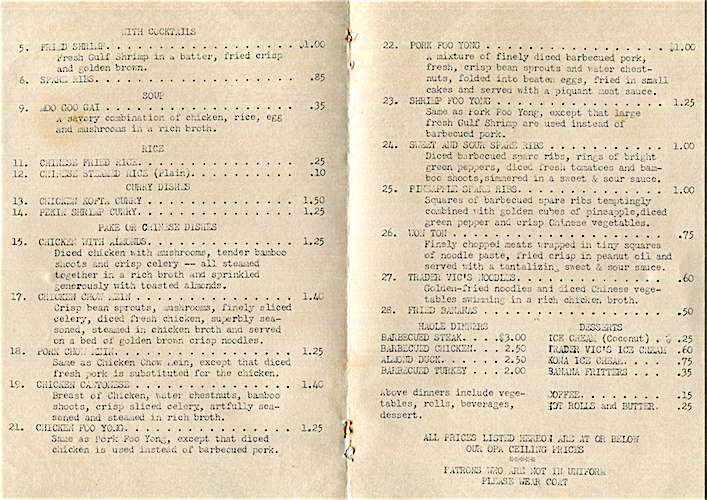 WITH COCKTAILS
5. FRIED SHRIMP. . . . . . . . . . . . . . . $1.00
Fresh Gulf Shrimp in a batter, fried crisp
and golden brown.
6. SPARE RIBS. . . . . . . . . . . . . . . . .85
SOUP
9. MOO GOO GAI . . . . . . . . . . . . . . . .35
A savory combination of chicken, rice, egg
and mushrooms in a rich broth.
RICE
11. CHINESE FRIED RICE. . . . . . . . . . . . .25
12. CHINESE STEAMED RICE (Plain). . . . . . . .10
CURRY DISHES
13. CHICKEN KOFTA CURRY . . . . . . . . . . . 1.50
14. PEKIN SHRIMP CURRY. . . . . . . . . . . . 1.25
PAKE OR CHINESE DISHES
15. CHICKEN WITH ALMONDS. . . . . . . . . . . 1.25
Diced chicken with mushrooms, tender bamboo
shoots and crisp celery -- all steamed
together in a rich broth and sprinkled
generously with toasted almonds.
17. CHICKEN CHOW MEIN . . . . . . . . . . . . 1.40
Crisp bean sprouts, mushrooms, finely sliced
celery, diced fresh chicken, superbly sea-
soned, steamed in chicken broth and served
on a bed of golden brown crisp noodles.
18. PORK CHOW MEIN. . . . . . . . . . . . . . 1.25
Same as Chicken Chow Mein, except that diced
fresh pork is substituted for the chicken.
19. CHICKEN CANTONESE . . . . . . . . . . . . 1.40
Breast of Chicken, water chestnuts, bamboo
shoots, crisp sliced celery, artfully sea-
soned and steamed in rich broth.
21. CHICKEN FOO YONG. . . . . . . . . . . . . 1.25
Same as Pork Foo Yong, except that diced
chicken is used instead of barbecued pork.
22. PORK FOO YONG . . . . . . . . . . . . . . $1.00
A mixture of finely diced barbecued pork,
fresh, crisp bean sprouts and water chest-
nuts, folded into beaten eggs, fried in small
cakes and served with a piquant meat sauce.
23. SHRIMP FOO YONG . . . . . . . . . . . . . 1.25
Same as Pork Foo Yong, except that large
fresh Gulf Shrimp are used instead of
barbecued pork.
24. SWEET AND SOUR SPARE RIBS . . . . . . . . 1.00
Diced barbecued spare ribs, rings of bright
green peppers, diced fresh tomatoes and bam-
boo shoots,simmered in a sweet & sour sauce.
25. PINEAPPLE SPARE RIBS. . . . . . . . . . . 1.00
Squares of barbecued spare ribs temptingly
combined with golden cubes of pineapple,diced
green pepper and crisp Chinese vegetables.
26. WON TON . . . . . . . . . . . . . . . . . .75
Finely chopped meats wrapped in tiny squares
of noodle paste, fried crisp in peanut oil and
served with a tantalizing sweet & sour sauce.
27. TRADER VIC'S NOODLES. . . . . . . . . . . .60
Golden-fried noodles and diced Chinese vege-
tables swimming in a rich chicken broth.
28. FRIED BANANAS . . . . . . . . . . . . . . .50
HAOLE DINNERS
BARBECUED STEAK. . . .$3.00
BARBECUED CHICKEN. . . 2.50
ALMOND DUCK. . . . . . 2.50
BARBECUED TURKEY . . . 2.00
Above dinners include vege-
tables, rolls, beverages,
dessert.
DESSERTS
ICE CREAM (Coconut) . $ .25
TRADER VIC'S ICE CREAM .60
KONA ICE CREAM. . . . . .75
BANANA FRITTERS . . . . .35
COFFEE. . . . . . . . . .15
HOT ROLLS and BUTTER. . .25
ALL PRICES LISTED HEREON ARE AT OR BELOW
OUR OPA CEILING PRICES
*****
PATRONS WHO ARE NOT IN UNIFORM
PLEASE WEAR COAT